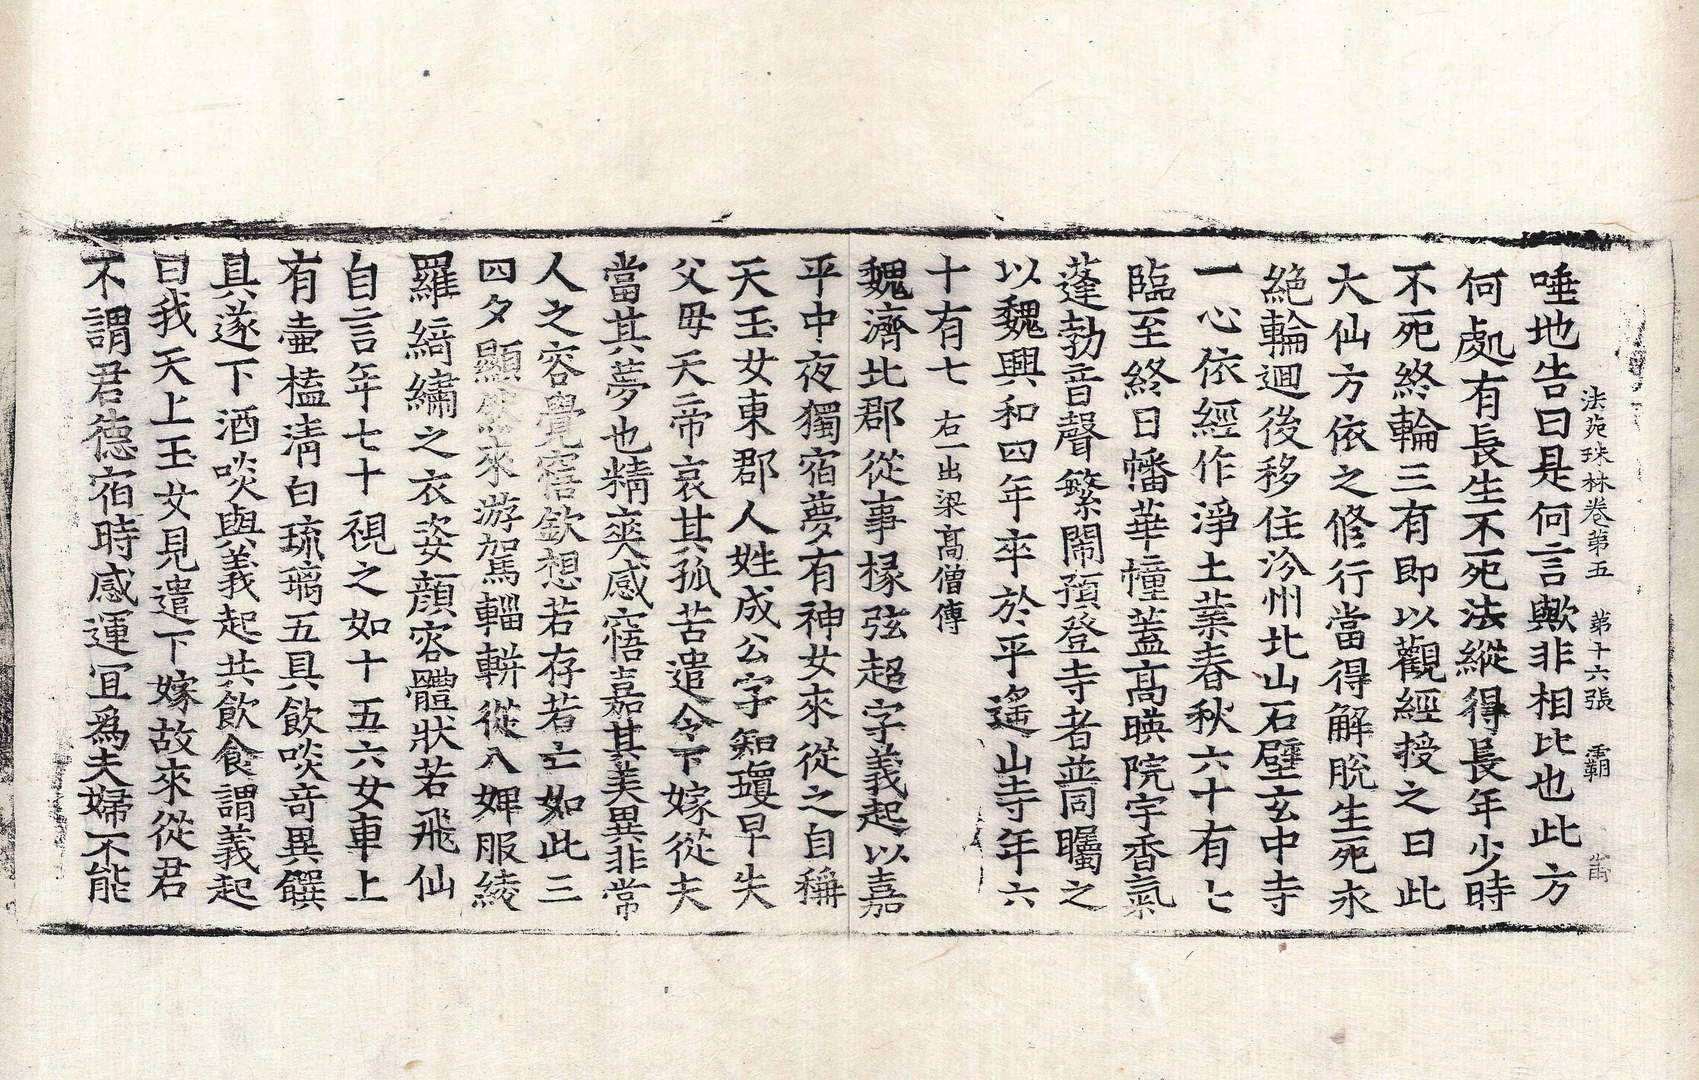 法苑珠林卷第五　第十六張　霸
唾地告曰是何言歟非相比也此方
何處有長生不死法縱得長年少時
不死終輪三有即以觀經授之曰此
大仙方依之修行當得解脫生死永
絕輪迴後移住汾州北山石壁玄中寺
一心依經作淨土業春秋六十有七
臨至終日幡華幢蓋高暎院宇香氣
蓬勃音聲繁鬧預登寺者並同矚之
以魏興和四年卒於平遙山寺年六
十有七　右一出梁高僧傳
魏濟北郡從事掾弦超字義起以嘉
平中夜獨宿夢有神女來從之自稱
天玉女東郡人姓成公字知瓊早失
父母天帝哀其孤苦遣令下嫁從夫
當其夢也精爽感寤嘉其美異非常
人之容覺寤欽想若存若亡如此三
四夕顯然來游駕輜軿從八婢服綾
羅綺繡之衣姿顏容體狀若飛仙
自言年七十視之如十五六女車上
有壷榼淸白琉璃五具飲啖奇異饌
具遂下酒啖與義起共飲食謂義起
曰我天上玉女見遣下嫁故來從君
不謂君德宿時感運宜爲夫婦不能